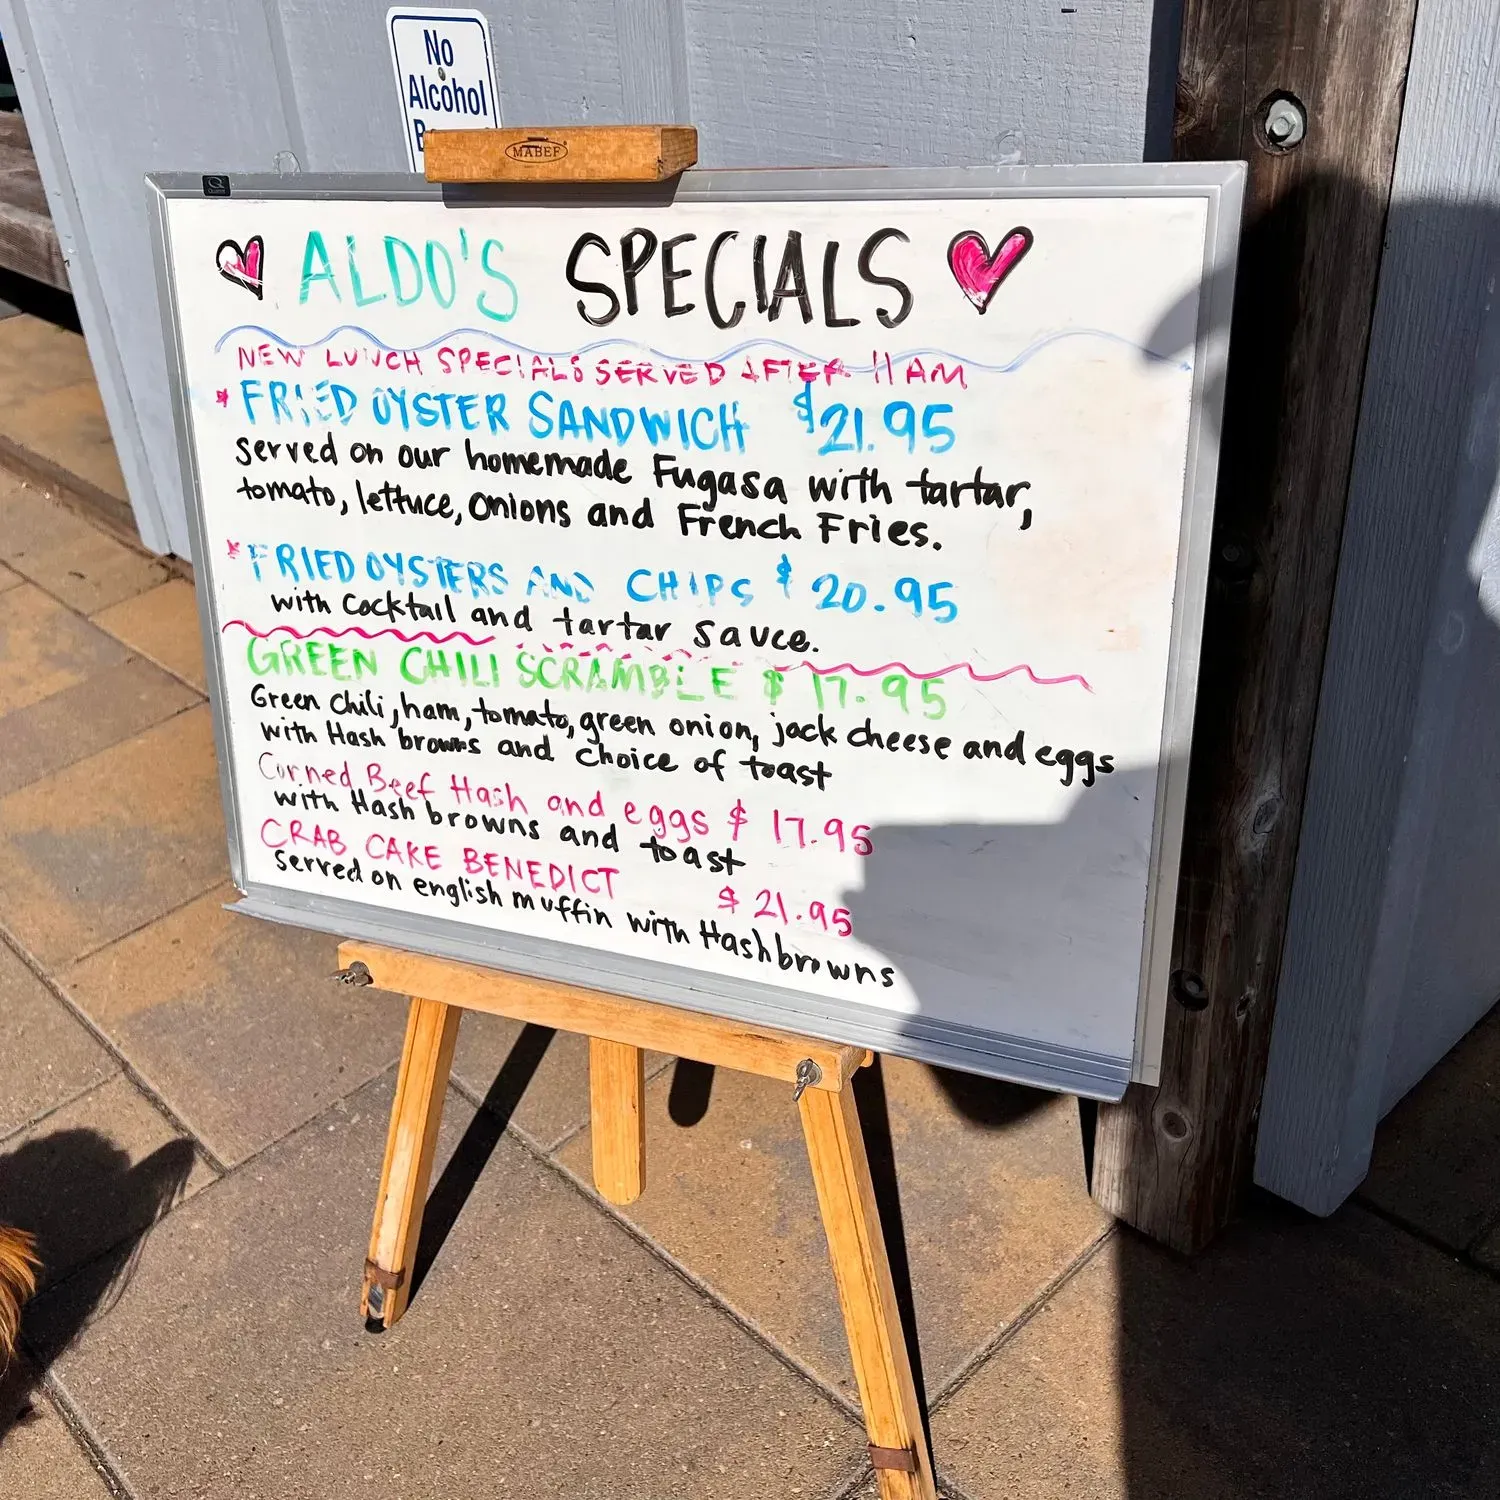 No
Alcohol
MABEF
ALDO'S SPECIALS
NEW LUNCH SPECIALS SERVED AFTER 11 AM
* FRIED OYSTER SANDWICH $21.95
served on our homemade Fugasa with tartar,
tomato, lettuce, onions and French Fries.
* FRIED OYSTERS AND CHIPS $20.95
with cocktail and tartar sauce.
GREEN CHILI SCRAMBLE $17.95
Green chili, ham, tomato, green onion, jack cheese and eggs
with Hash browns and choice of toast
Corned Beef Hash and eggs $17.95
with Hash browns and toast
CRAB CAKE BENEDICT $21.95
served on english muffin with Hashbrowns